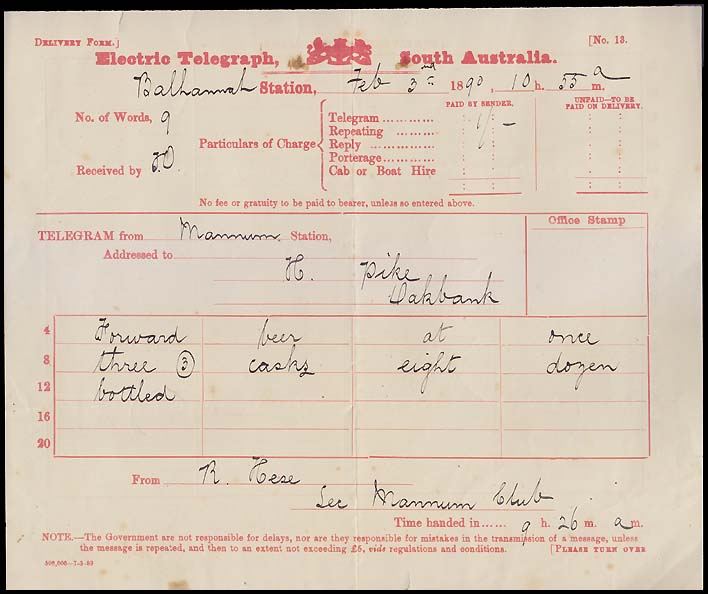 DELIVERY FORM.] [No. 13.
Electric Telegraph, South Australia.
Balhannah Station, Feb 3rd 1890, 10 h. 55 a m.
No. of Words, 9
Received by
Particulars of Charge
PAID BY SENDER. UNPAID—TO BE PAID ON DELIVERY.
Telegram ............ 1/-
Repeating ..........
Reply ...............
Porterage............
Cab or Boat Hire
No fee or gratuity to be paid to bearer, unless so entered above.
Office Stamp
TELEGRAM from Mannum Station,
Addressed to
H. Pike
Oakbank
4 Forward beer at once
8 three (3) casks eight dozen
12 bottled
16
20
From R. Hese
Sec Mannum Club
Time handed in...... 9 h. 26 m. a m.
NOTE.—The Government are not responsible for delays, nor are they responsible for mistakes in the transmission of a message, unless
the message is repeated, and then to an extent not exceeding £5, vide regulations and conditions. [PLEASE TURN OVER